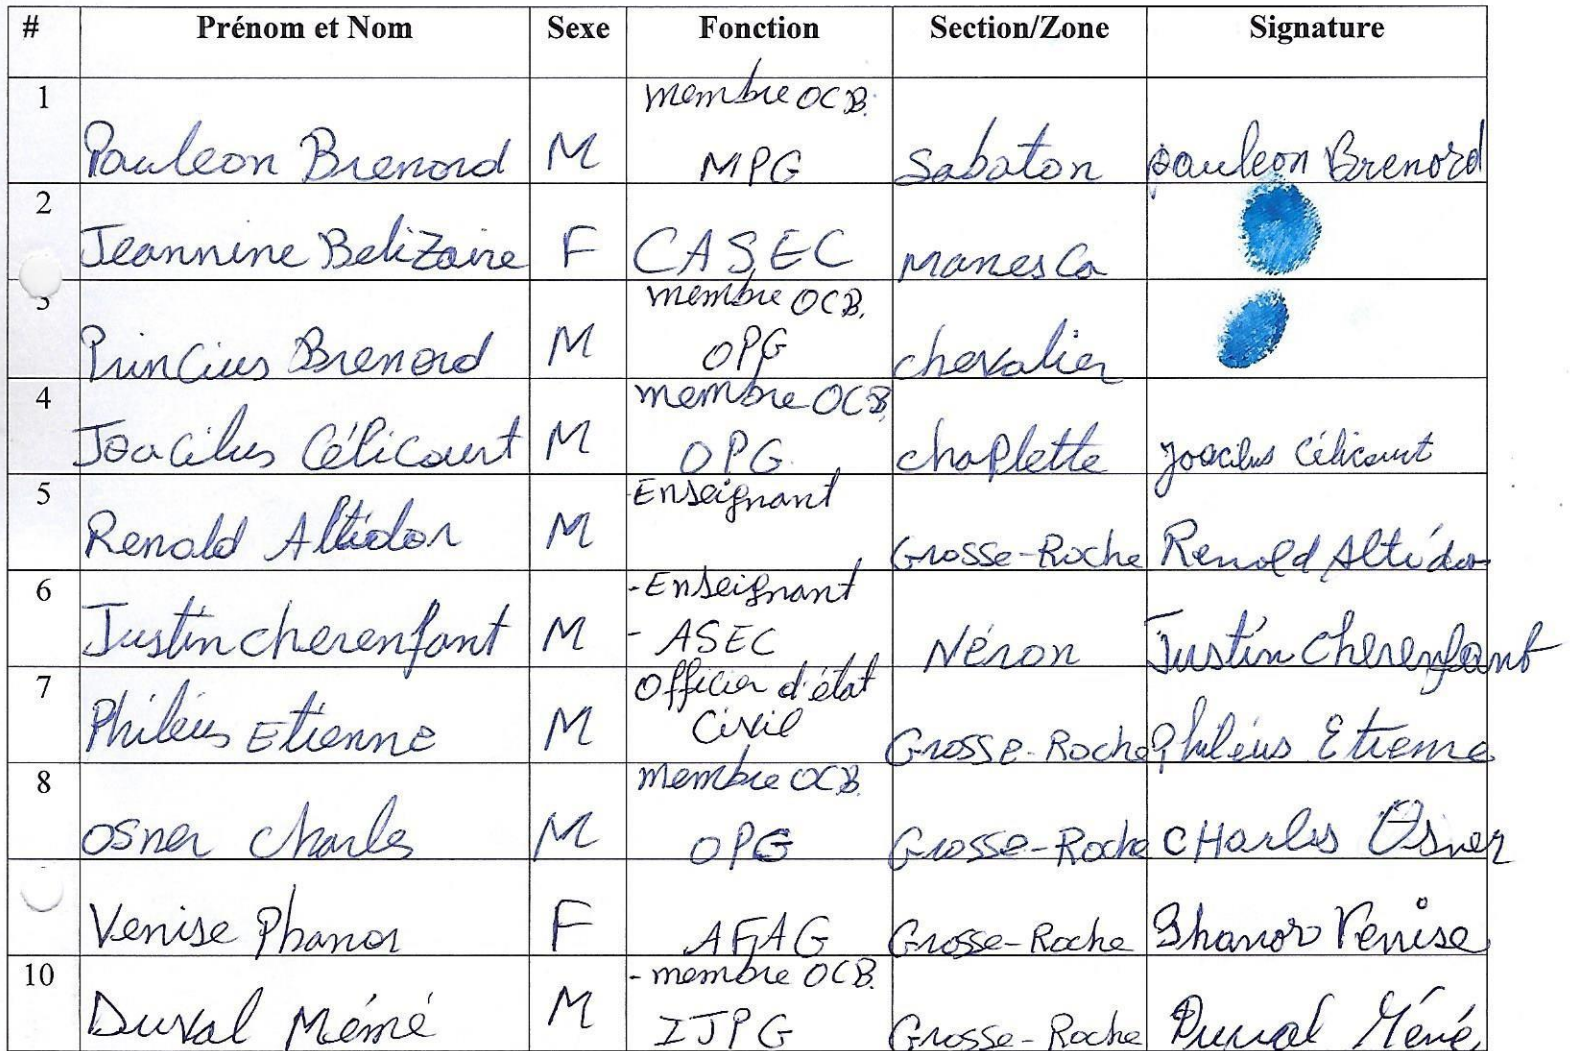 # Prénom et Nom Sexe Fonction Section/Zone Signature
1 Pauleon Brenord M membre OCB. MPG Sabaton pauleon Brenord
2 Jeannine BeliZaire F CASEC manesCa
3 PrinCius Brenord M membre OCB. OPG chevalier
4 Joacilus CéliCourt M membre OCB OPG. chaPlette Joacilus Célicourt
5 Renold Altidor M -Enseignant Grosse-Roche Renold Altidor
6 Justin cherenfant M -Enseignant - ASEC Néron Justin Cherenfant
7 Philéus Etienne M Officier d'état Civil Grosse-Roche Philéus Etienne
8 osner charles M membre OCB. OPG Grosse-Roche CHarles Osner
Venise Phanor F AFAG Grosse-Roche Phanor Venise
10 Duval Méné M - membre OCB. IJPG Grosse-Roche Duval Méné